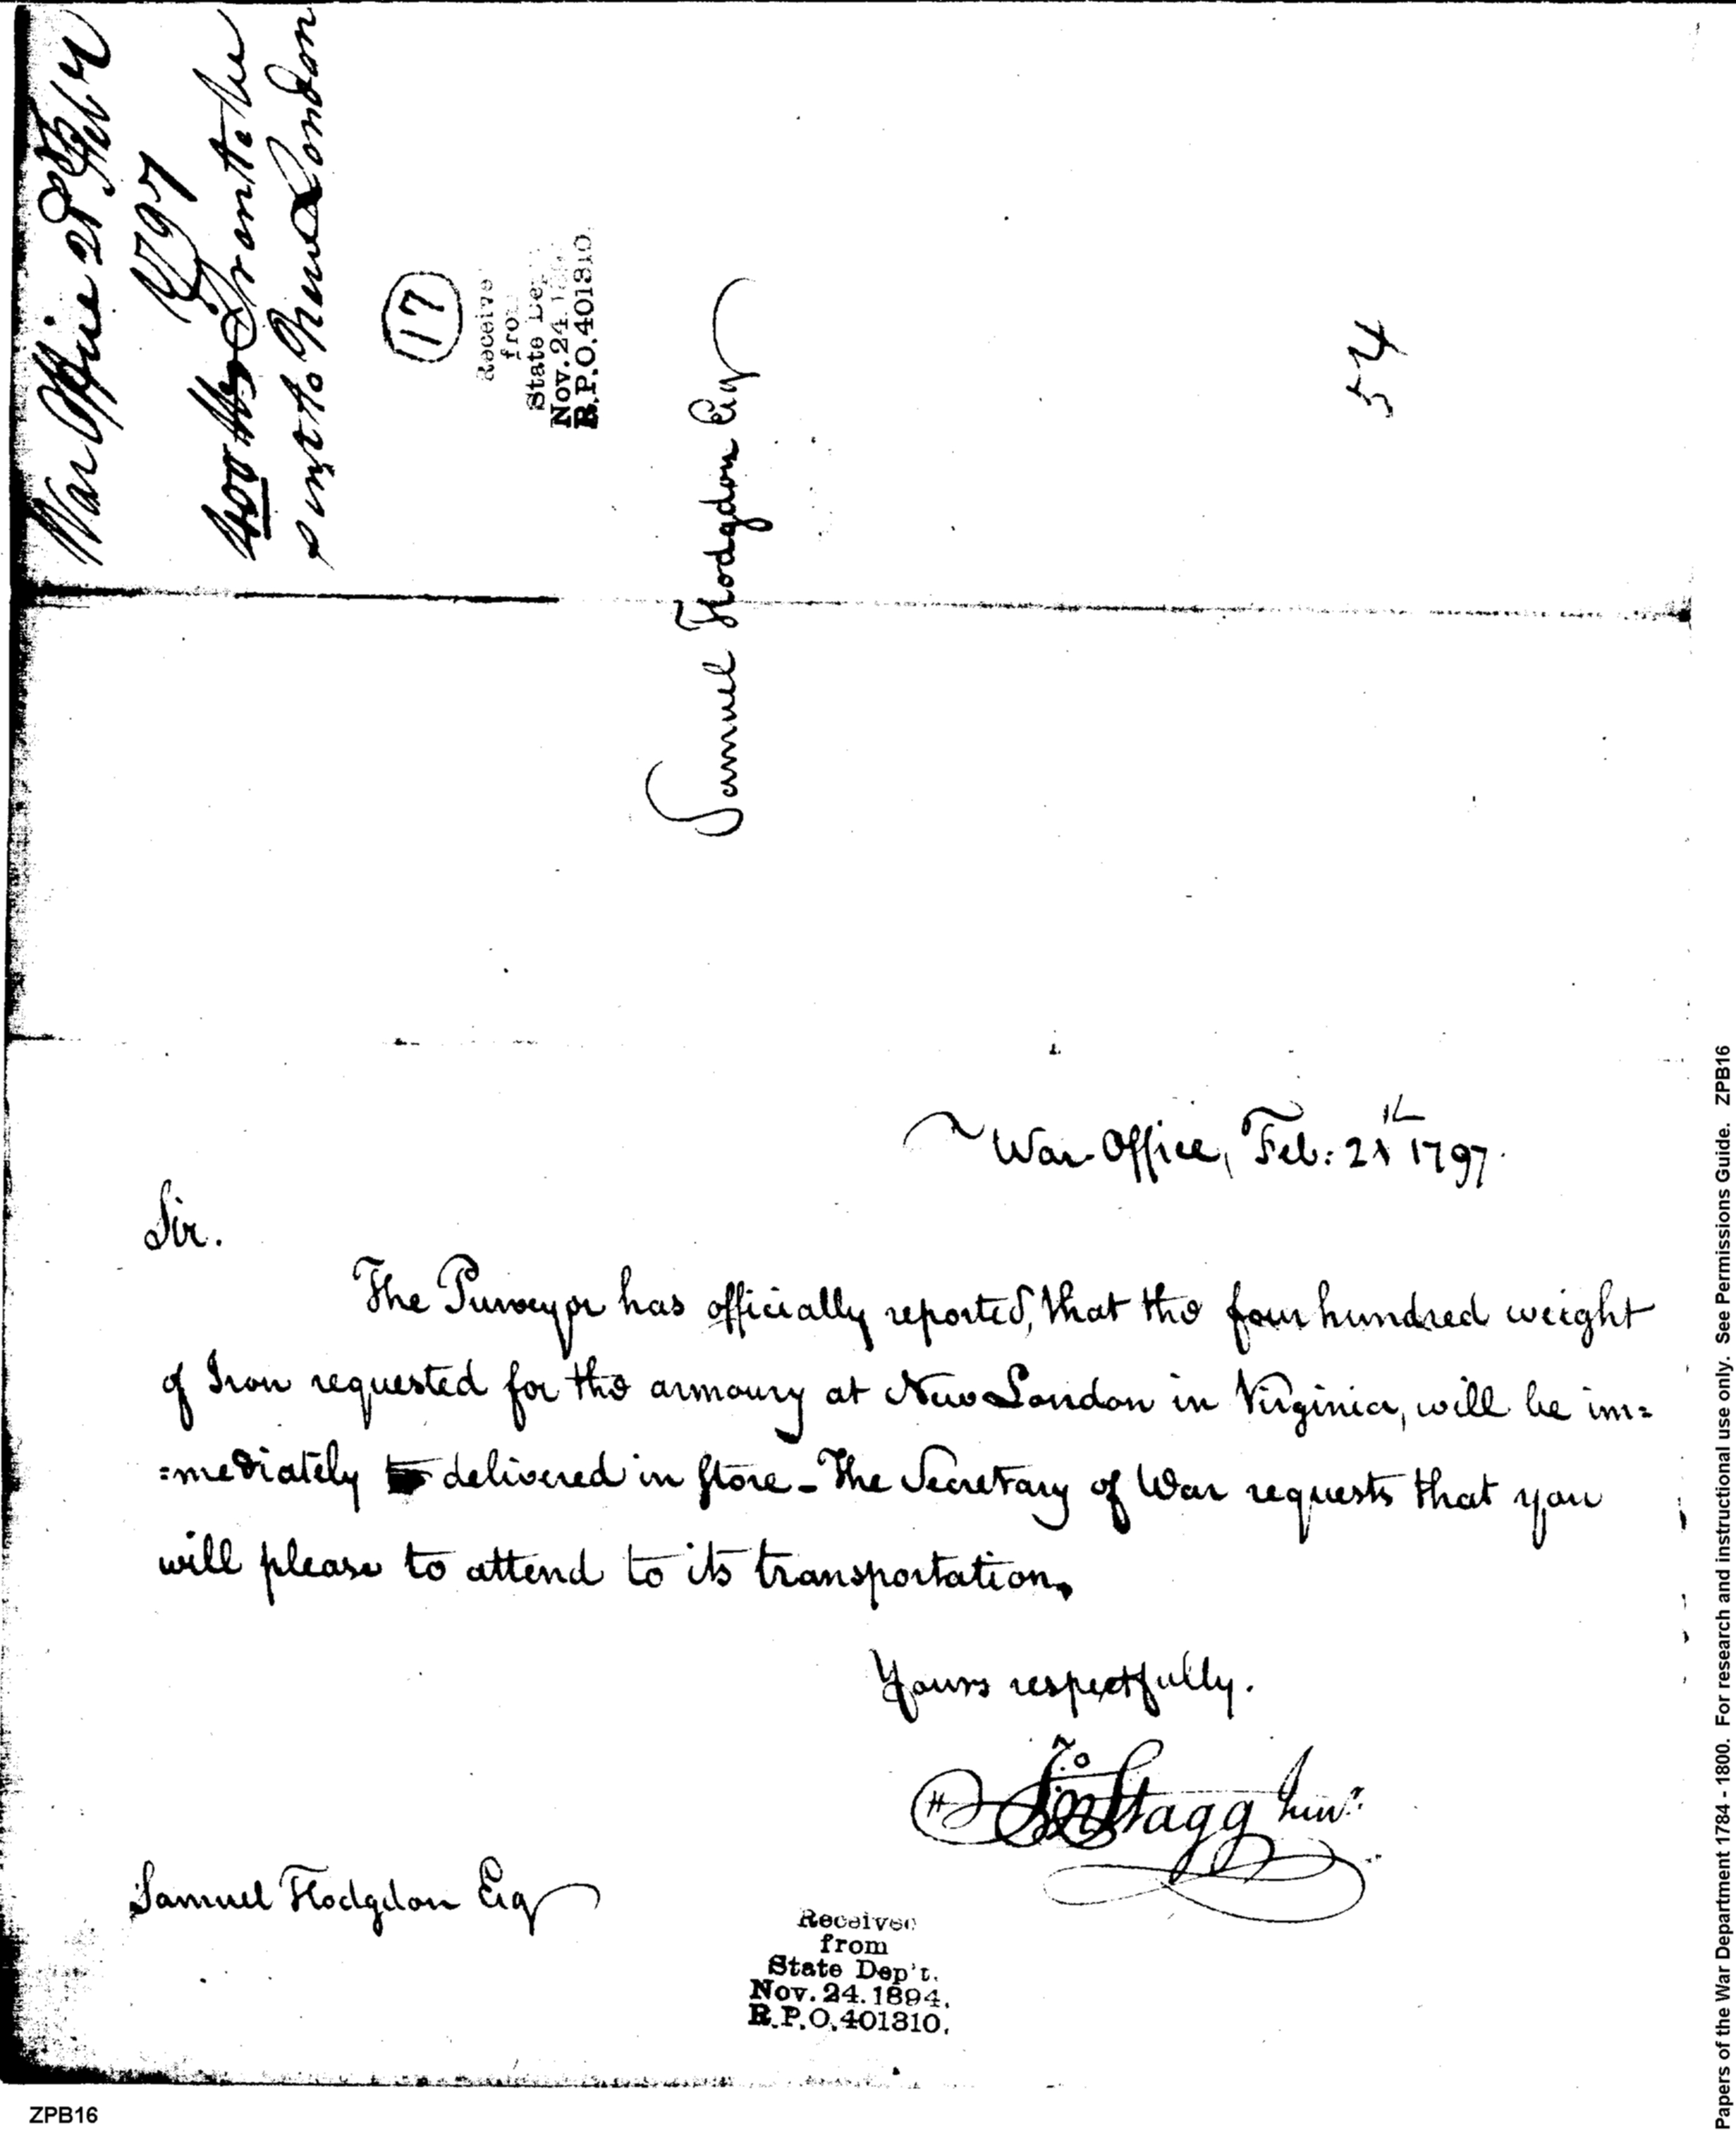 War Office 28 Feby
1797
400 Iron to be
sent to New London
17
Receive
from
State De
Nov. 24. 
R.P.O. 401310.
Samuel Hodgdon Esq
54
War Office, Feb: 28th 1797.
Sir.
The Purveyor has officially reported, that the four hundred weight
of Iron requested for the armoury at New London in Virginia, will be im=
=mediately delivered in store - The Secretary of War requests that you
will please to attend to its transportation.
Yours respectfully.
Jno Stagg Junr.
Samuel Hodgdon Esq
Received
from
State Dep't.
Nov. 24. 1894.
R.P.O. 401310.
ZPB16
Papers of the War Department 1784 - 1800. For research and instructional use only. See Permissions Guide. ZPB16